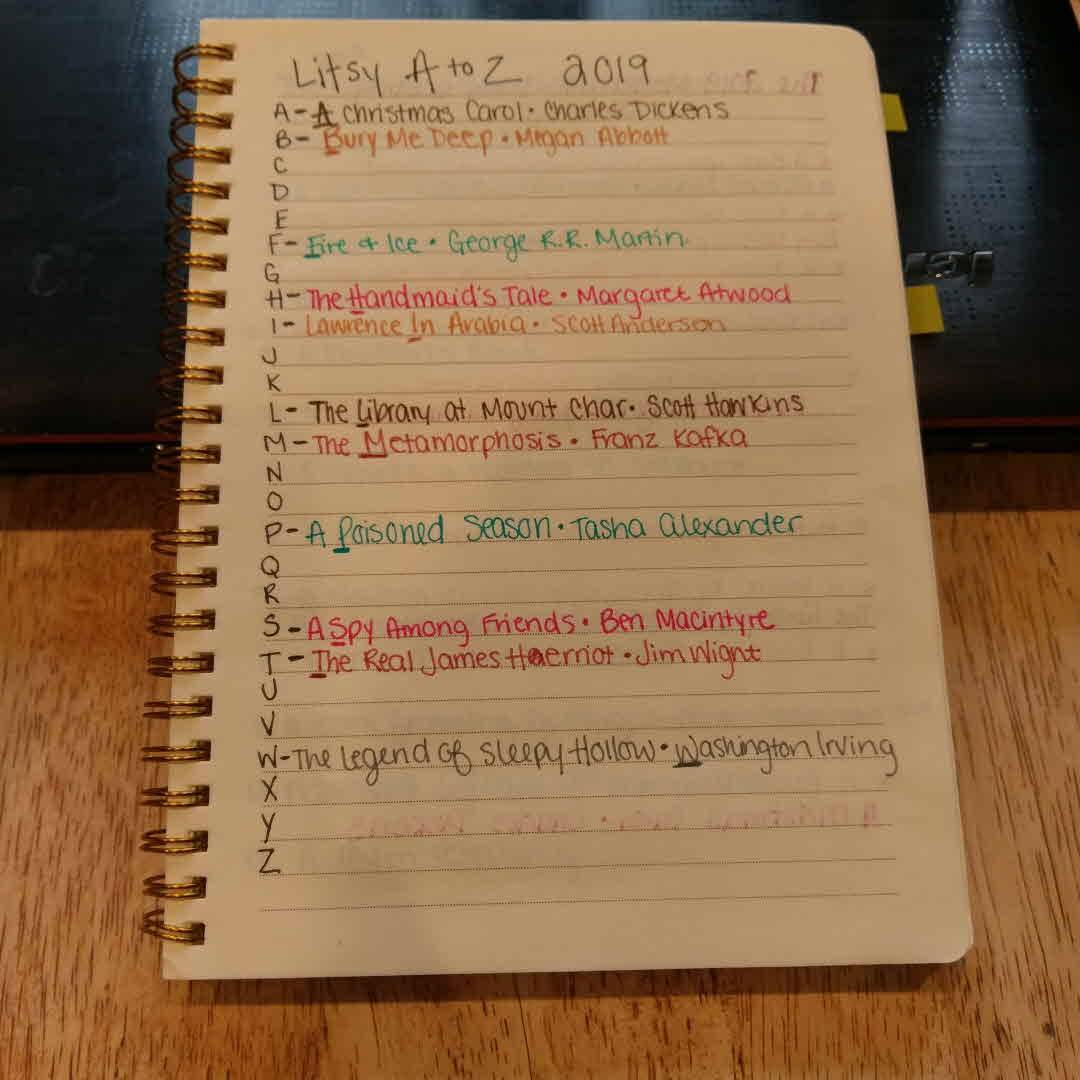 Litsy A to Z 2019
A - A Christmas Carol · Charles Dickens
B - Bury Me Deep · Megan Abbott
C
D
E
F - Fire & Ice · George R.R. Martin
G
H - The Handmaid's Tale · Margaret Atwood
I - Lawrence In Arabia · Scott Anderson
J
K
L - The Library at Mount Char · Scott Hawkins
M - The Metamorphosis · Franz Kafka
N
O
P - A Poisoned Season · Tasha Alexander
Q
R
S - A Spy Among Friends · Ben Macintyre
T - The Real James Haerriot · Jim Wight
U
V
W - The Legend of Sleepy Hollow · Washington Irving
X
Y
Z